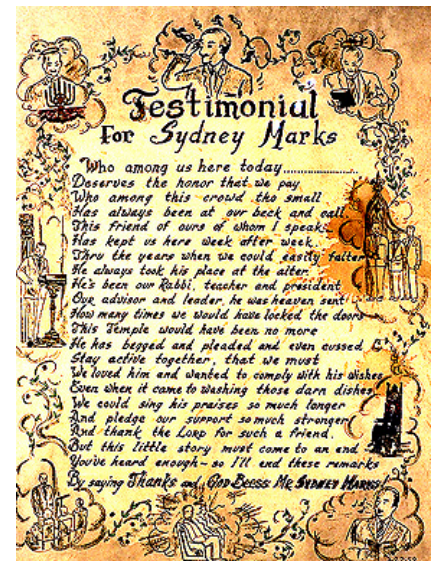 Testimonial
For Sydney Marks
Who among us here today..................
Deserves the honor that we pay
Who among this crowd tho small
Has always been at our beck and call
This friend of ours of whom I speak
Has kept us here week after week
Thru the years when we could easily falter
He always took his place at the alter
He's been our Rabbi, teacher and president
Our advisor and leader, he was heaven sent
How many times we would have locked the doors
This Temple would have been no more
He has begged and pleaded and even cussed
Stay active together, that we must
We loved him and wanted to comply with his wishes
Even when it came to washing those darn dishes
We could sing his praises so much longer
And pledge our support so much stronger
And thank the Lord for such a friend.
But this little story must come to an end
You've heard enough - so I'll end these remarks
By saying Thanks and God Bless Mr Sydney Marks